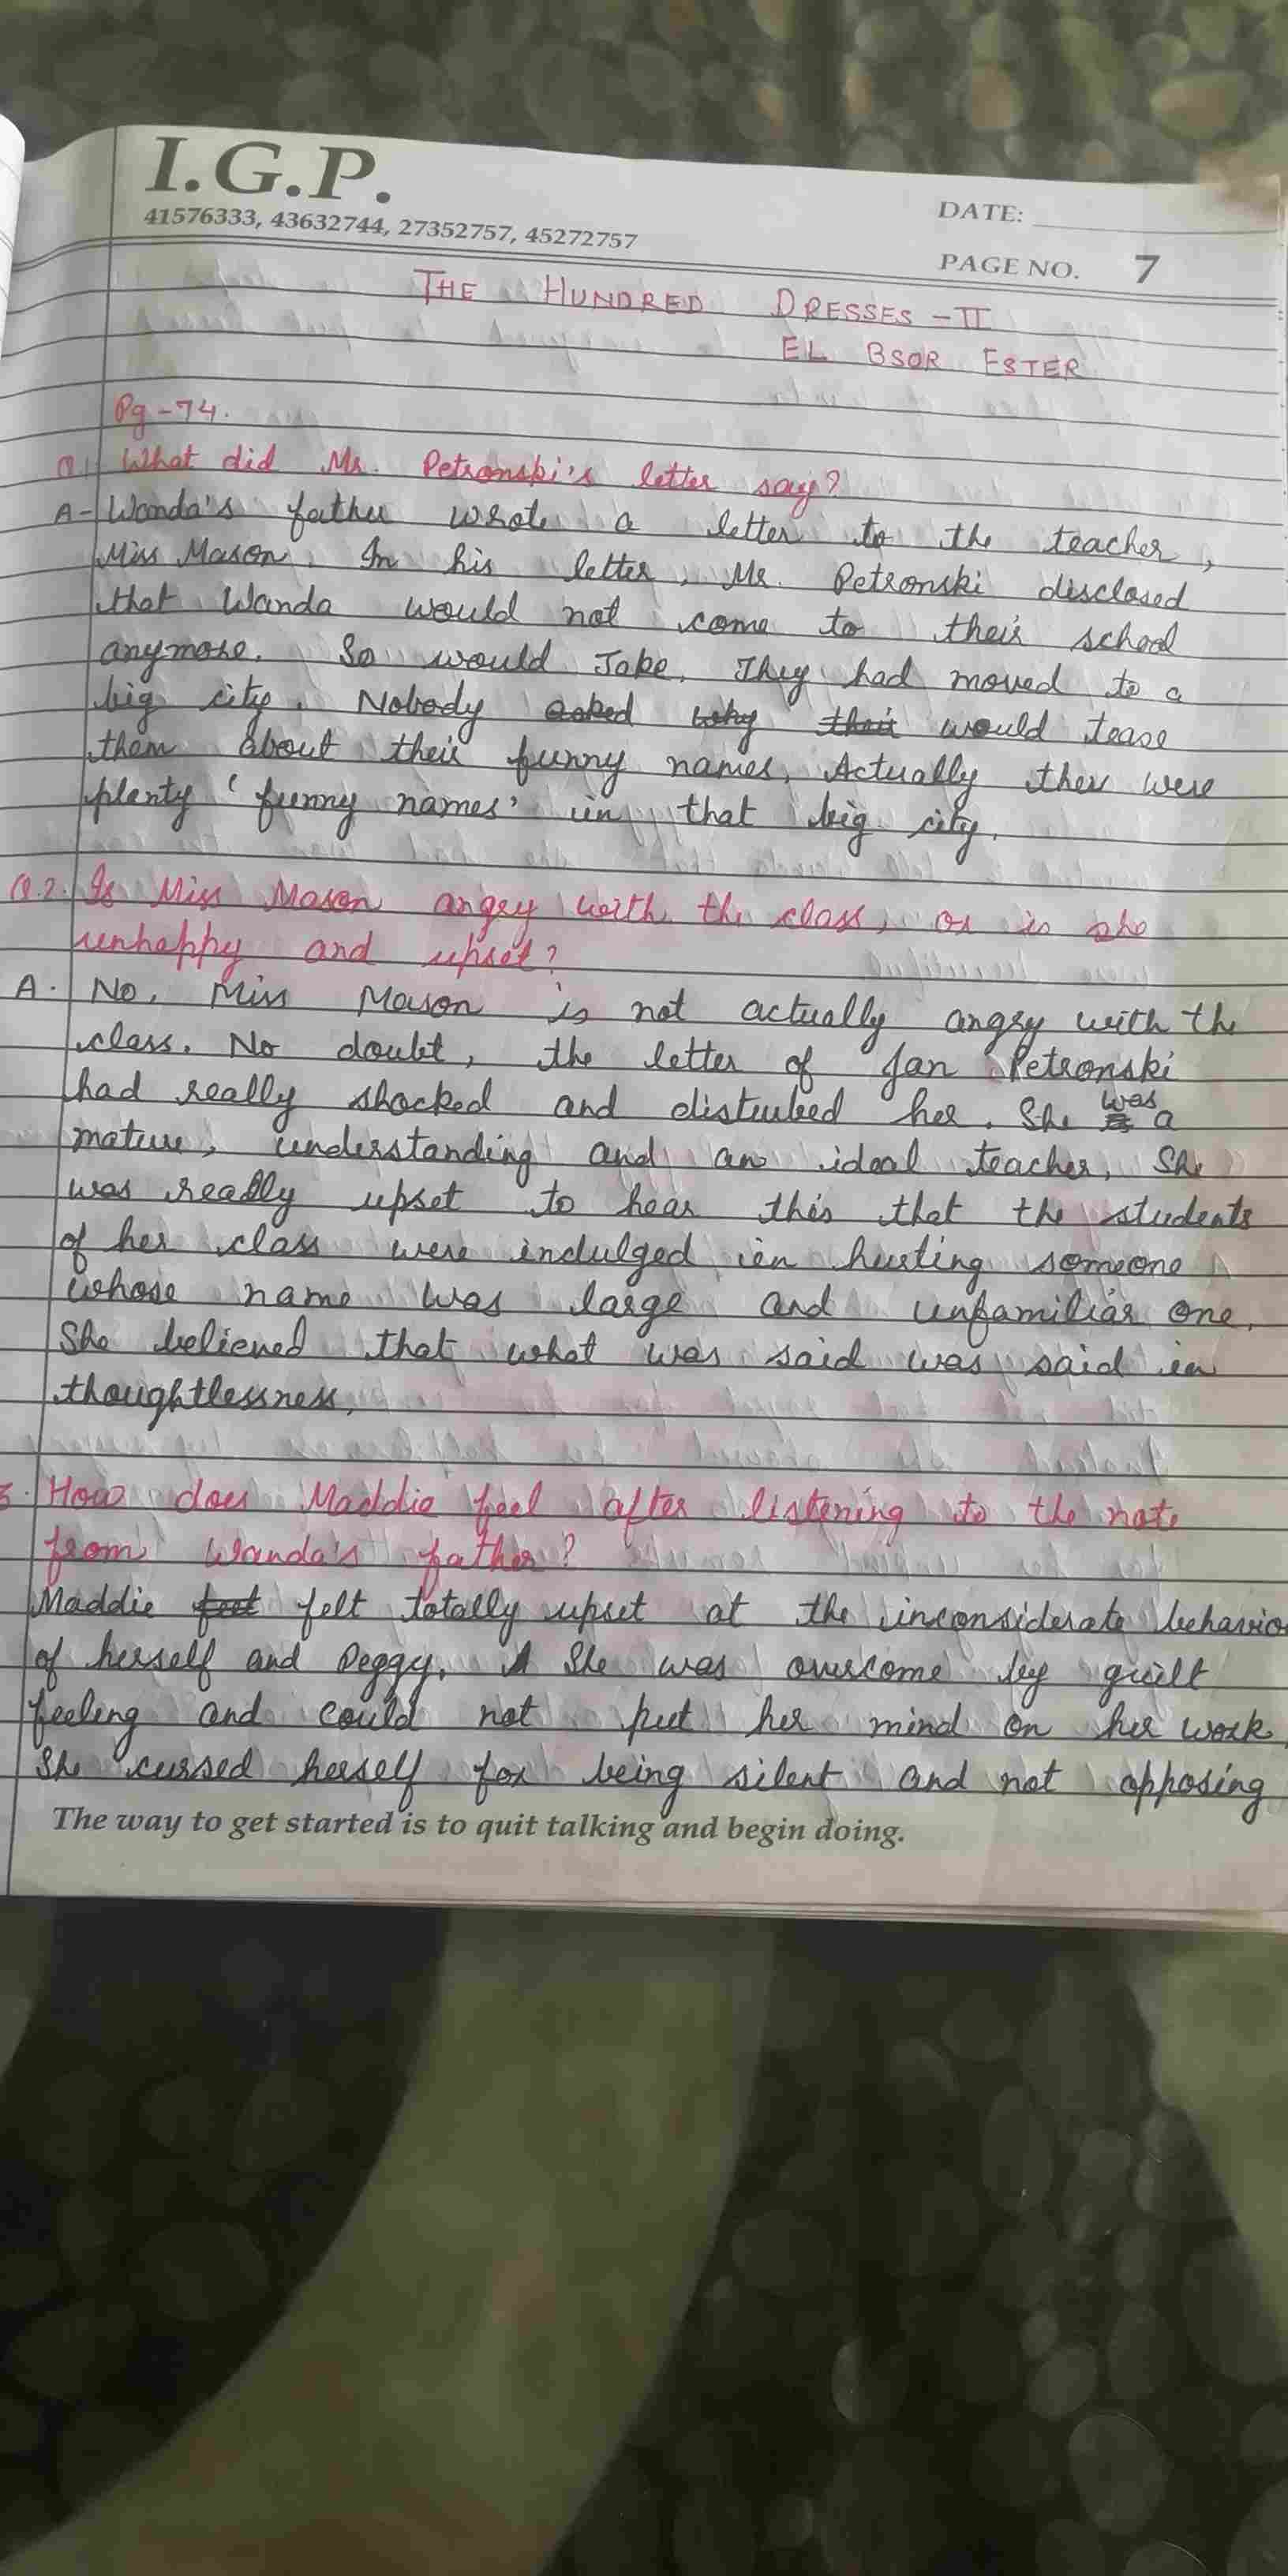 I.G.P.
41576333, 43632744, 27352757, 45272757
DATE:
PAGE NO. 7
THE HUNDRED DRESSES - II
EL BSOR ESTER
Pg - 74.
Q1 What did Mr. Petronski's letter say?
A- Wanda's father wrote a letter to the teacher,
Miss Mason. In his letter, Mr. Petronski disclosed
that Wanda would not come to their school
anymore. So would Jake. They had moved to a
big city. Nobody asked why their would tease
them about their funny names. Actually ther were
plenty 'funny names' in that big city.
Q.2. Is Miss Mason angry with the class, or is she
unhappy and upset?
A. No, Miss Mason is not actually angry with the
class. No doubt, the letter of Jan Petronski
had really shocked and disturbed her. She was a
mature, understanding and an ideal teacher. She
was really upset to hear this that the students
of her class were indulged in hurting someone
whose name was large and unfamiliar one.
She believed that what was said was said in
thoughtlessness.
3. How does Maddie feel after listening to the note
from Wanda's father?
Maddie felt totally upset at the inconsiderate behavio
of herself and Peggy. She was overcome by guilt
feeling and could not put her mind on her work.
She cursed herself for being silent and not opposing
The way to get started is to quit talking and begin doing.